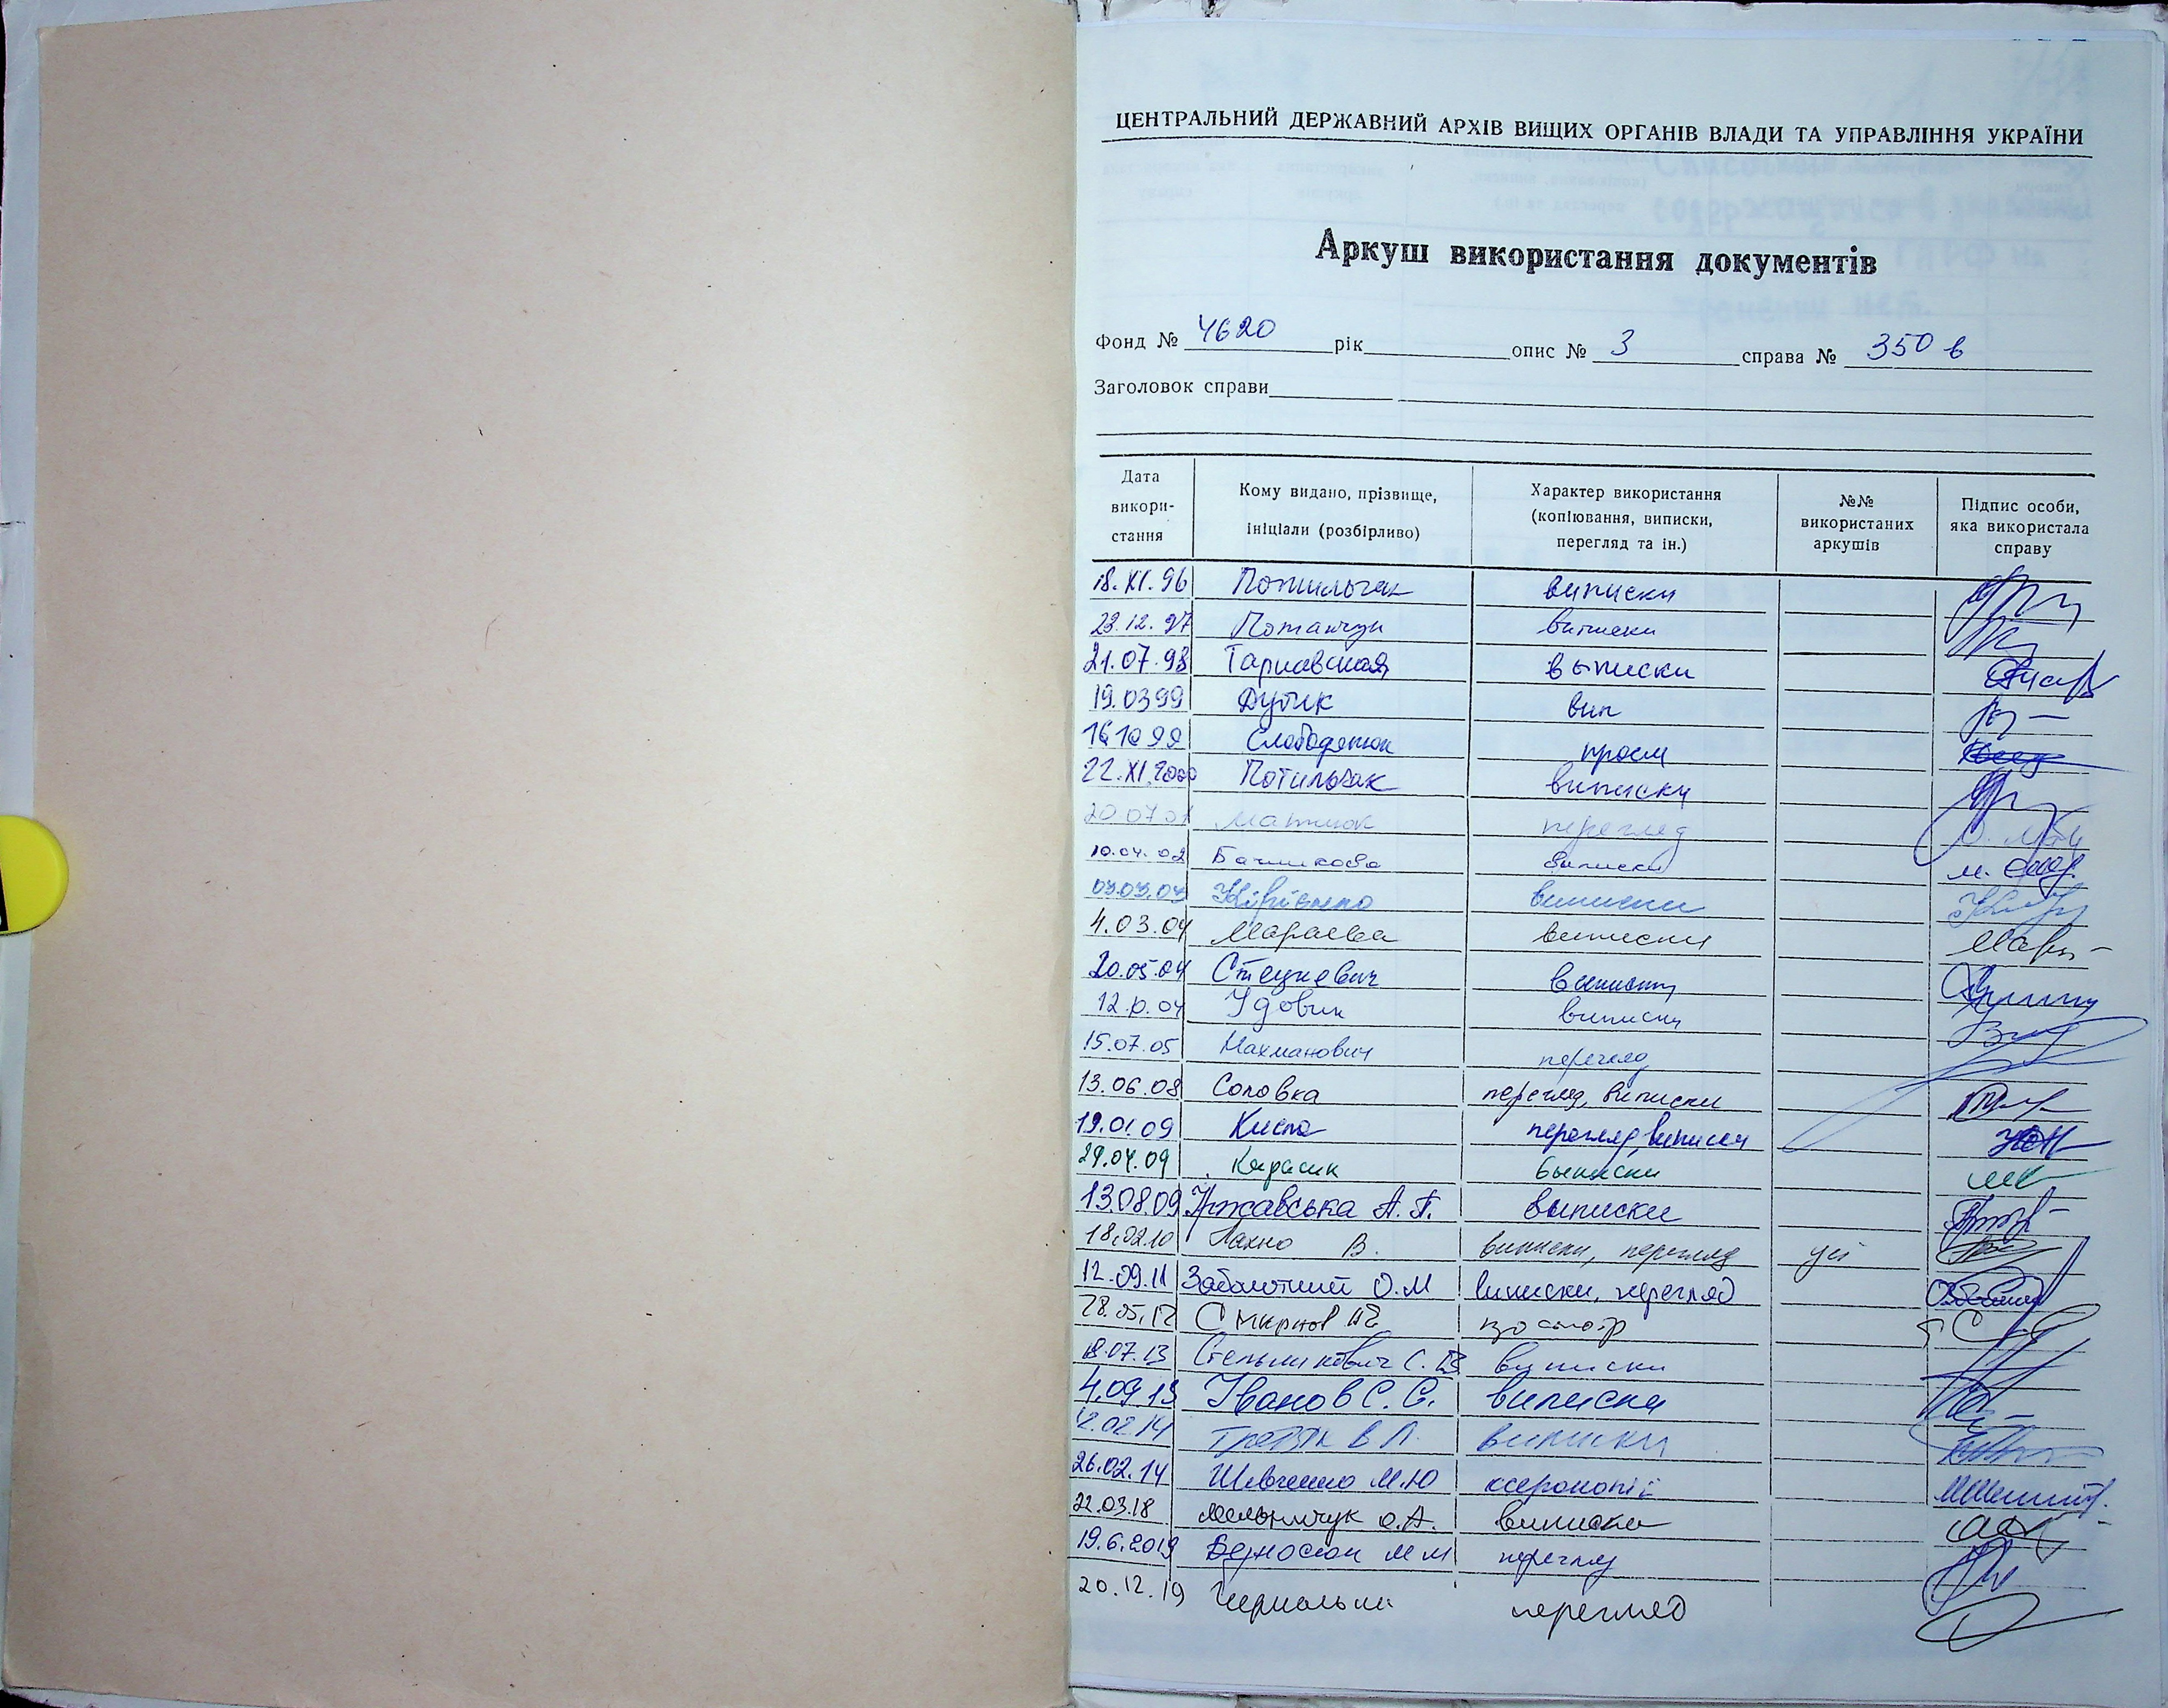 ЦЕНТРАЛЬНИЙ ДЕРЖАВНИЙ АРХІВ ВИЩИХ ОРГАНІВ ВЛАДИ ТА УПРАВЛІННЯ УКРАЇНИ
Аркуш використання документів
Фонд № 4620 рік опис № 3 справа № 350 в
Заголовок справи
Дата викори-стання
Кому видано, прізвище, ініціали (розбірливо)
Характер використання (копіювання, виписки, перегляд та ін.)
№№ використаних аркушів
Підпис особи, яка використала справу
18.XI.96 Потильчак виписки
23.12.97 виписки
21.07.98 Тарнавская выписки
19.03 99 Дутик вип
16 10 99 Слободянюк просм
22.XI.2000 Потильчак виписки
20 07 01 Матиюк перегляд
10.04.02 виписки
03.03.03 виписки
4.03.04 Мараєва виписки
20.05.04 Стецкевич виписки
12.10.04 Удовик виписки
15.07.05 Нахманович перегляд
13.06.08 Соловка перегляд, виписки
19.01.09 перегляд, виписки
29.04.09 Карасик выписки
13.08.09 Ржавська А. П. виписки
18.02.10 Лахно В. виписки, перегляд усі
12.09.11 Заболотний О.М виписки, перегляд
28.05.12 Смирнов
18.07.13 Стельникович С. В виписки
4.09 13 Іванов С. С. виписки
12.02 14 В Л. виписки
26.02.14 Шевченко М.Ю ксерокопії
22.03.18 Мельничук О.А. виписки
19.6.2019 М М перегляд
20.12.19 перегляд